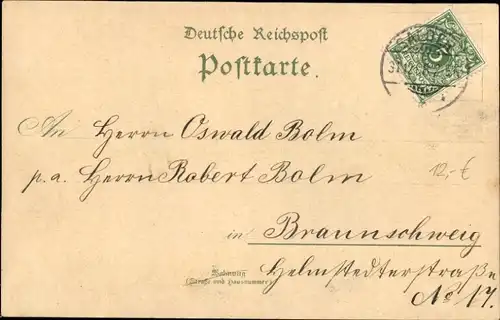 Deutsche Reichspost
Postkarte.
SALDER
31
An Herrn Oswald Bolm
p.a. Herrn Robert Bolm
12,-€
in Braunschweig
Wohnung
(Straße und Hausnummer)
Helmstedterstraße
No 17.